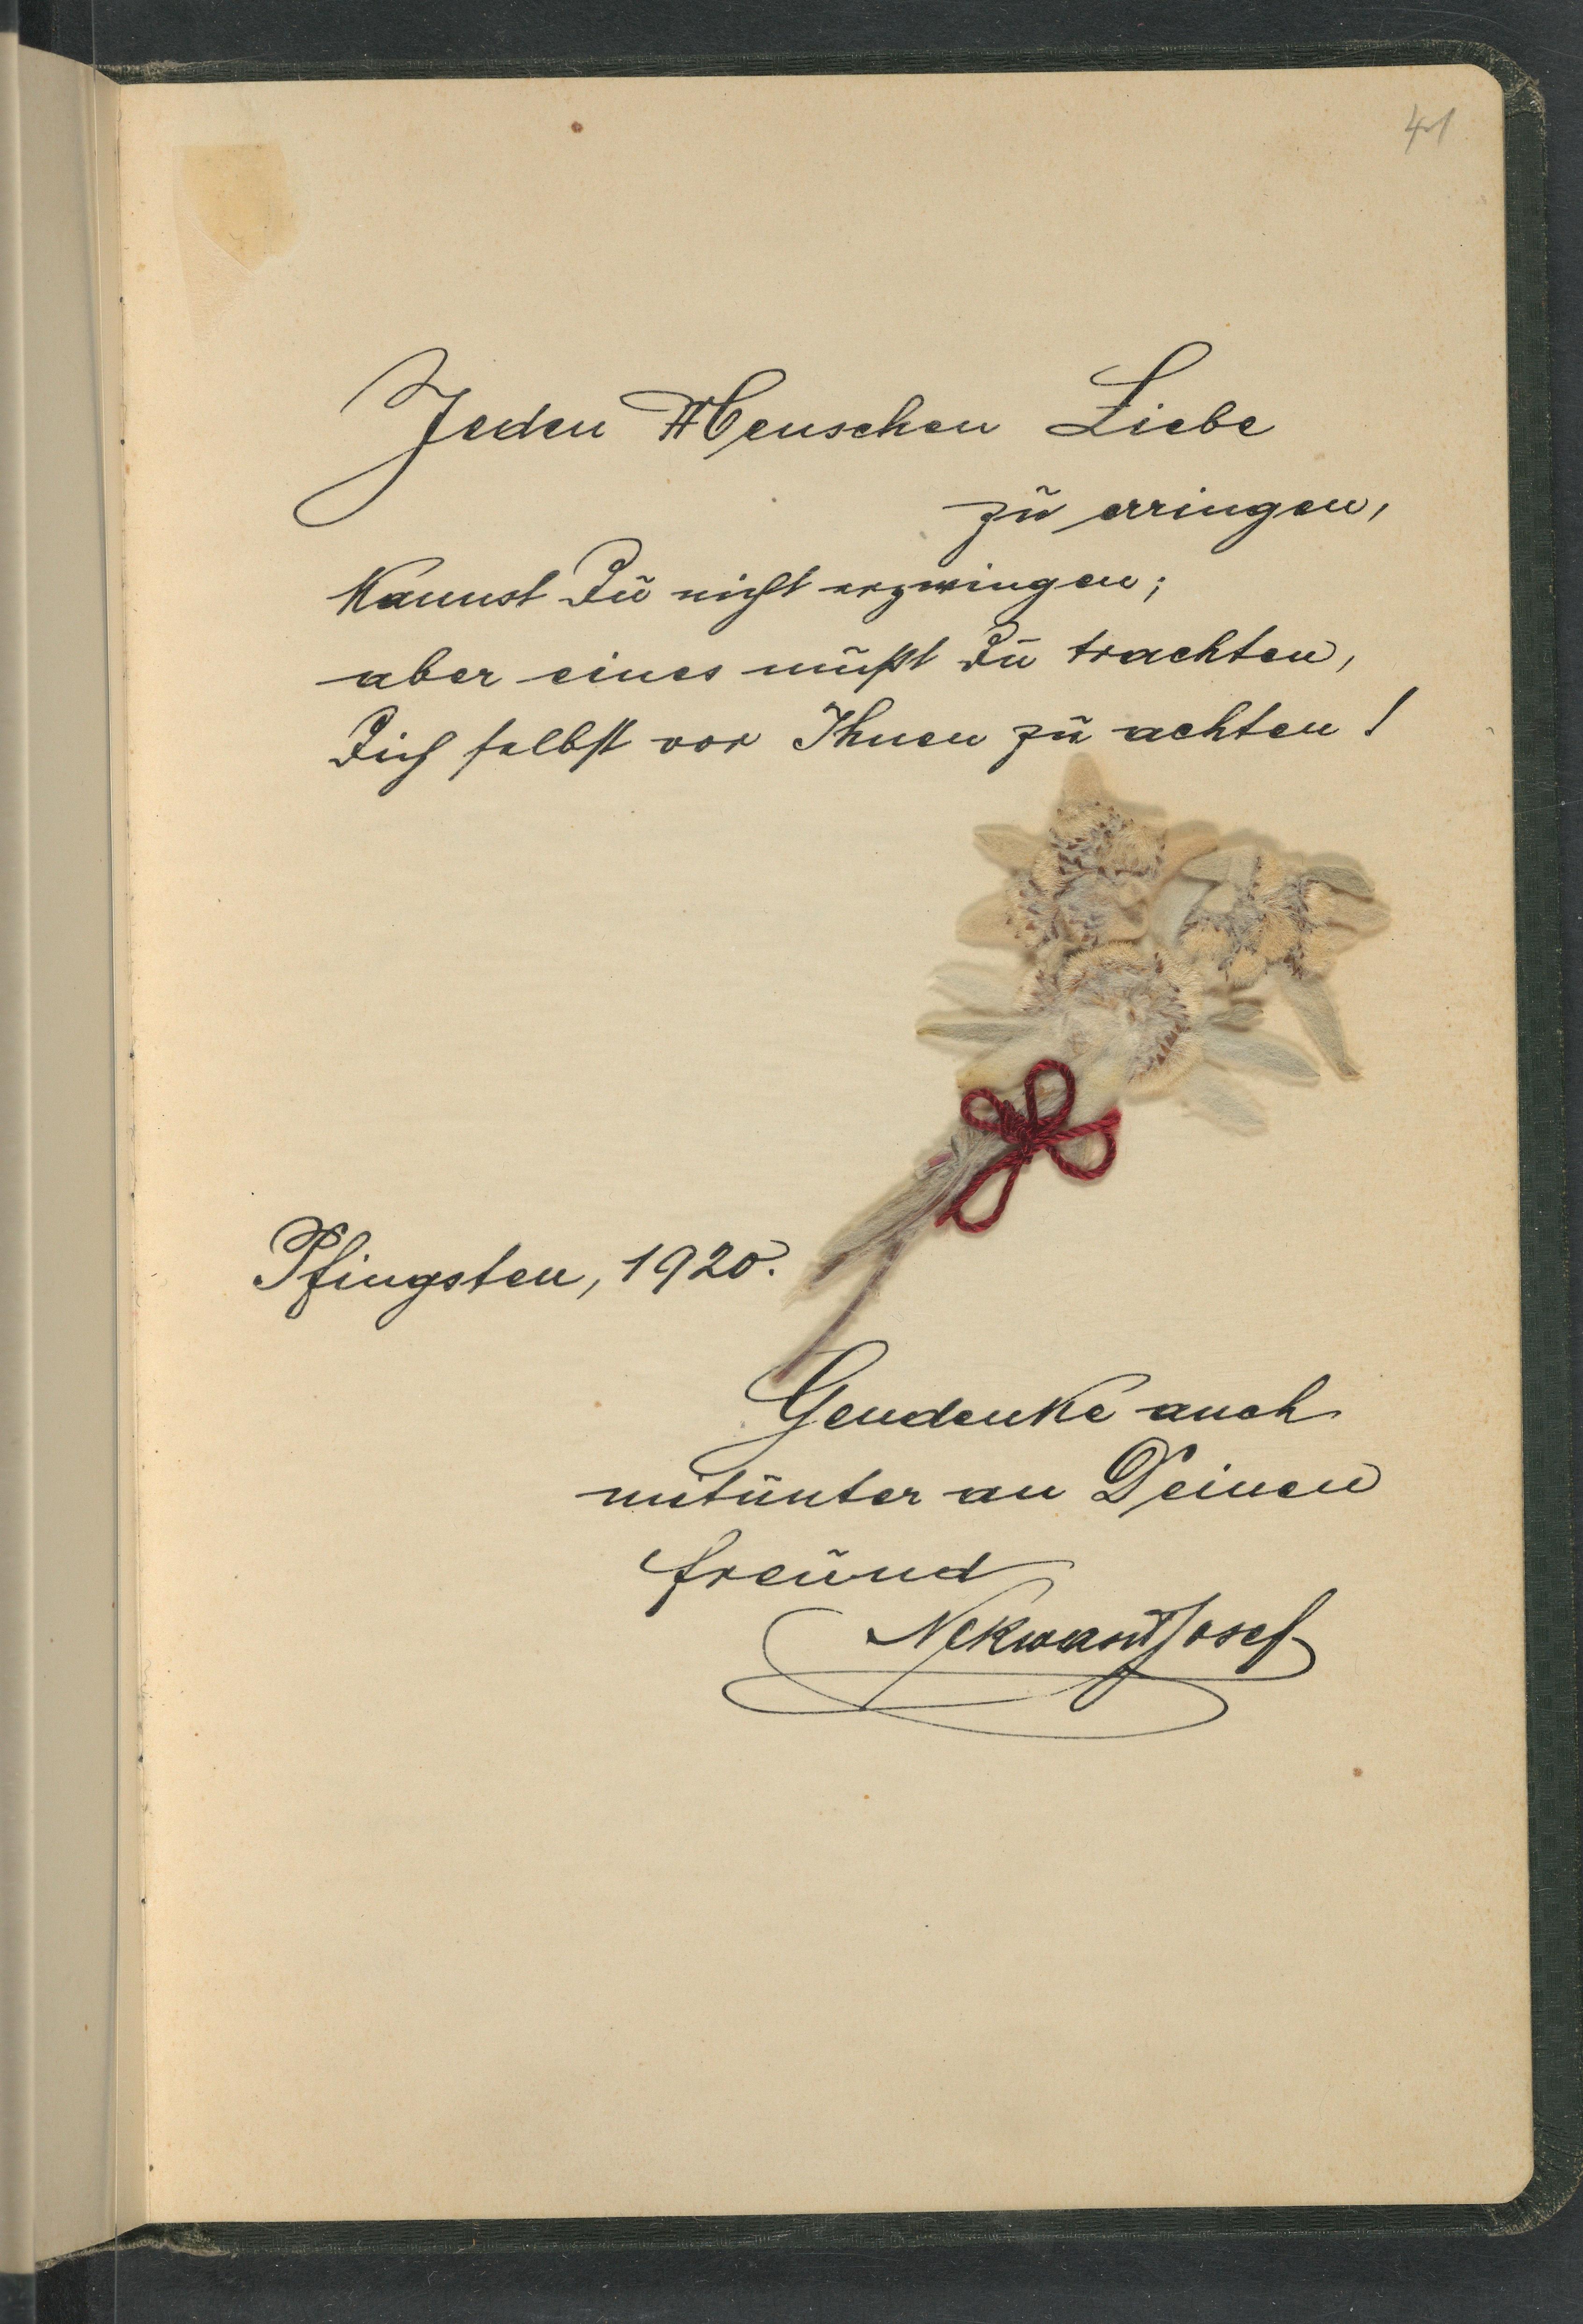 41
Jeden Menschen Liebe
zu erringen,
Kannst Du nicht erzwingen;
aber eines mußt Du trachten,
Dich selbst vor Ihnen zu achten!
Pfingsten, 1920.
Gendenke auch
mitunter an Deinen
freund
Josef